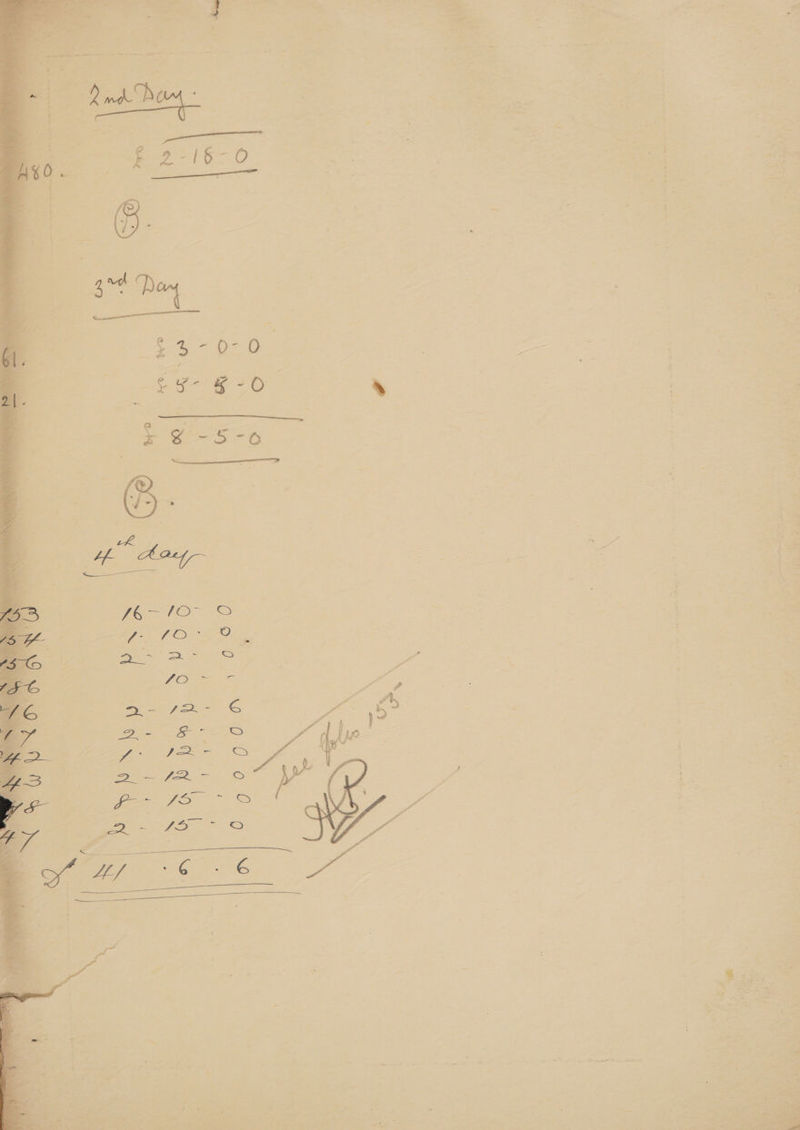 2nd Day.
480. £ 2-16-0
B.
3rd Day
61. £ 3-0-0
21. £ 5-5-0
£ 8-5-0
B.
4th day
153 16-10-0
154 1-10-0
156 2-2-0
186 10 - -
16 2-12-6
17 2-8-0
42 1-12-0
43 2-12-0
8-15-0
47 2-15-0
£ 41.6.6
See folio 155